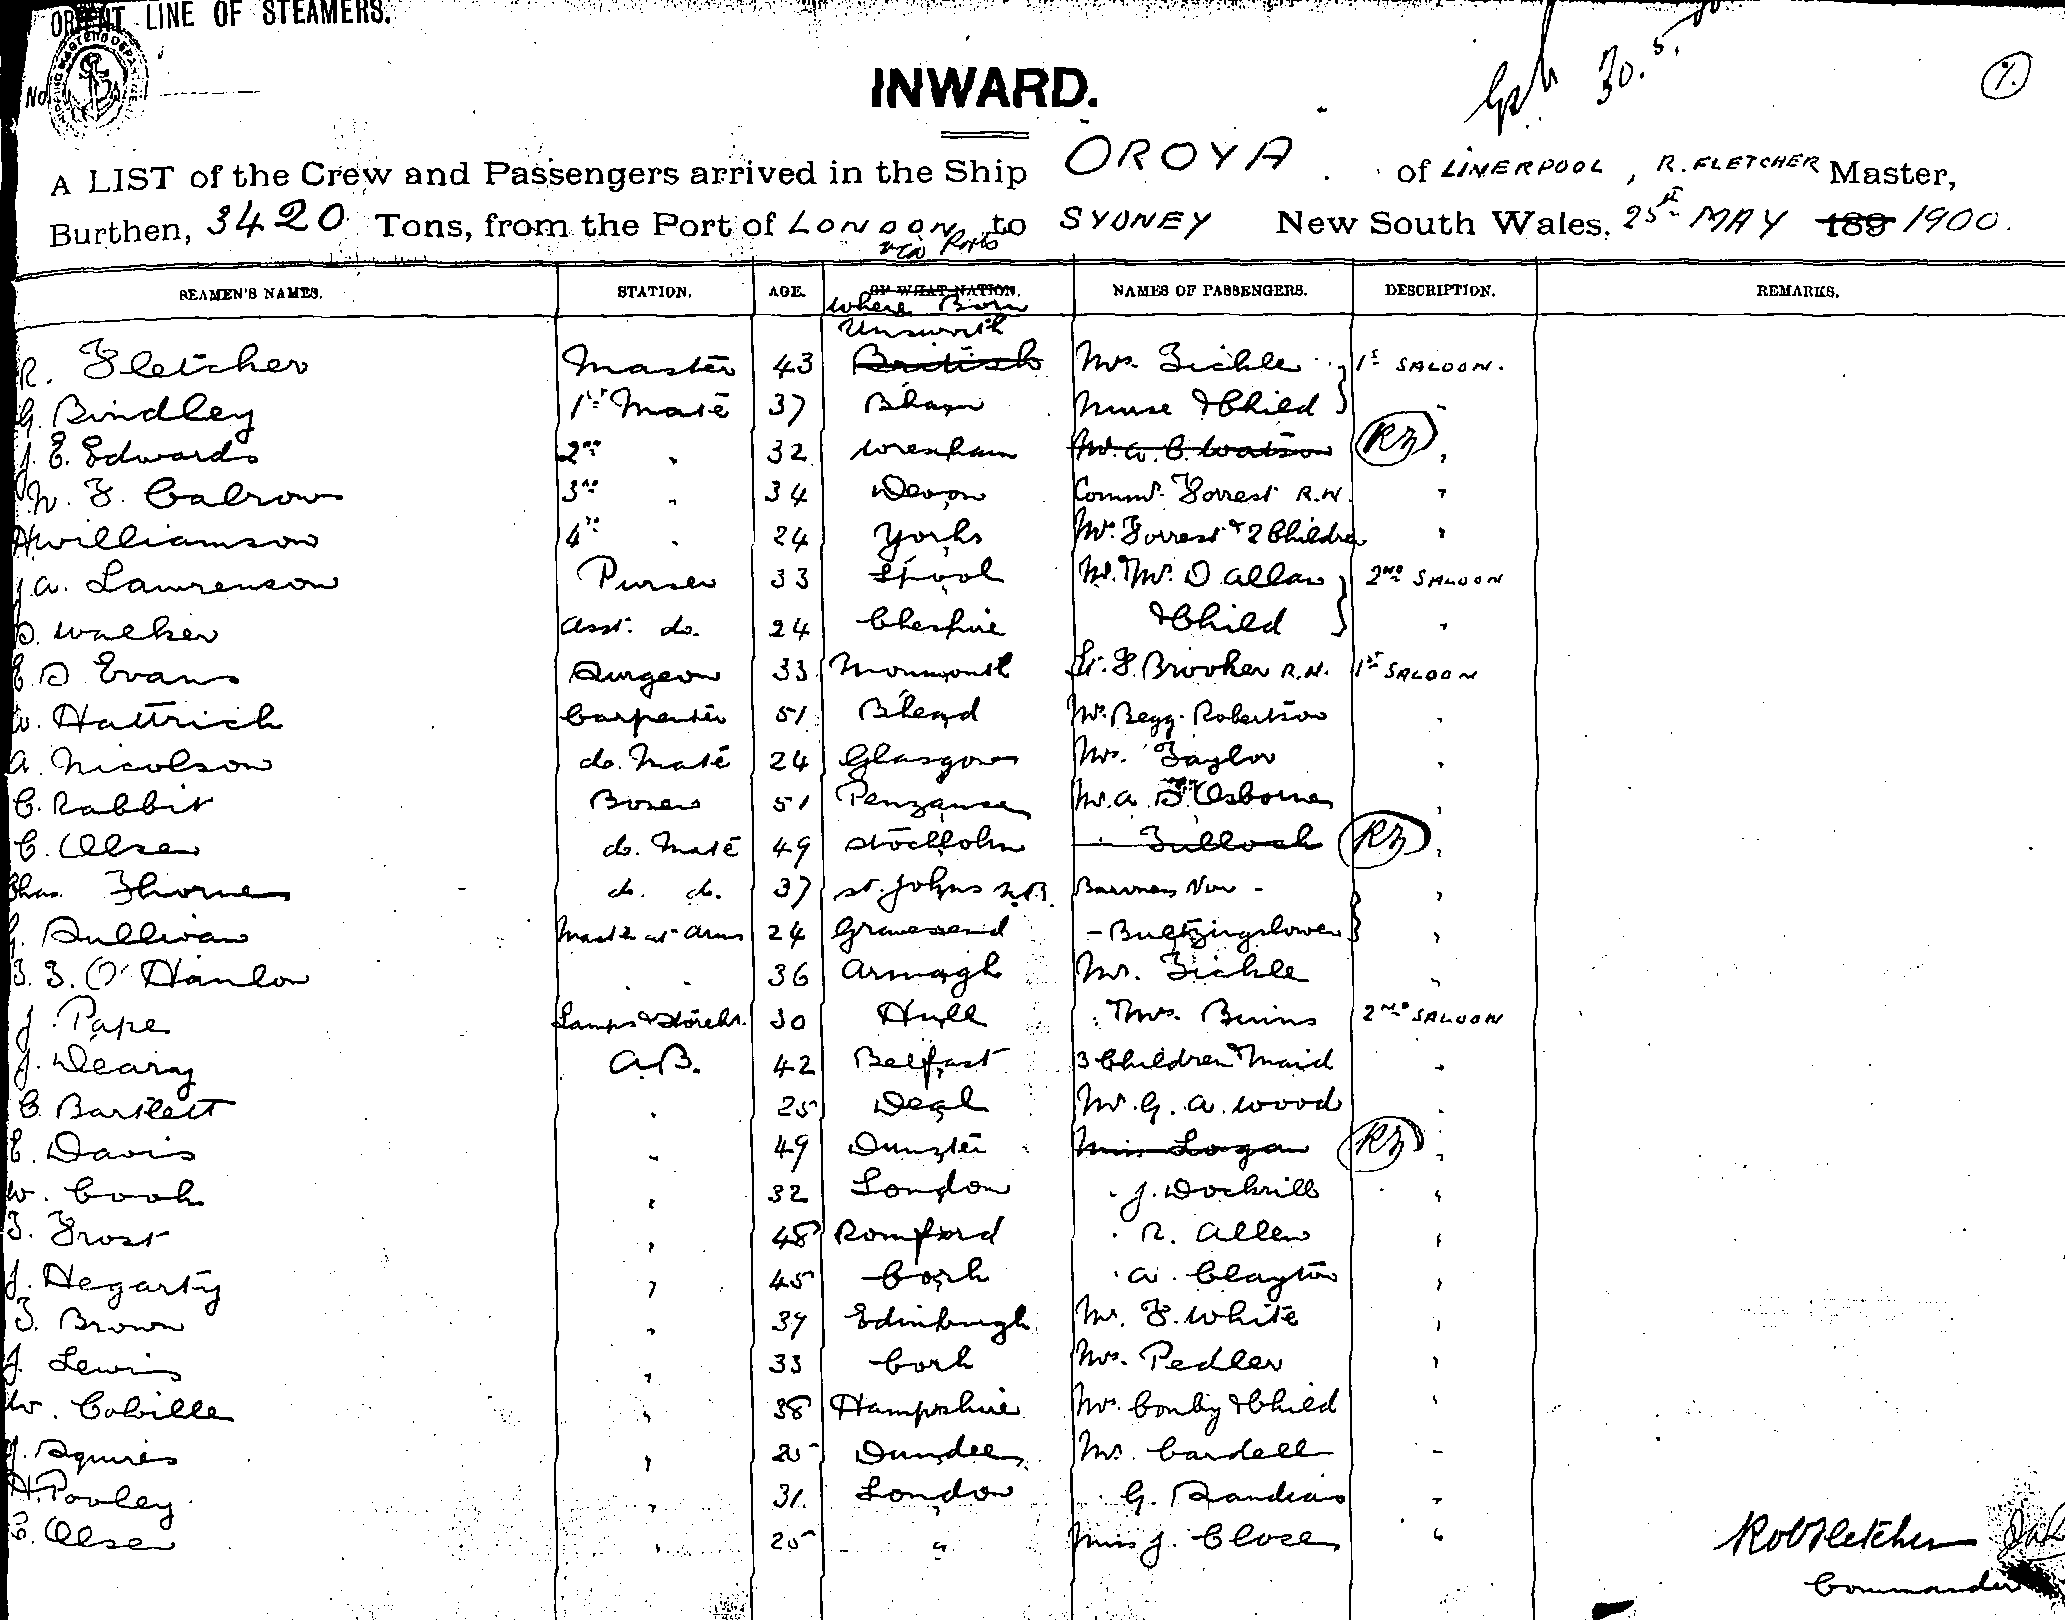 ORIENT LINE OF STEAMERS.
No.
INWARD.
30.5.
1.
A LIST of the Crew and Passengers arrived in the Ship OROYA of LIVERPOOL, R. FLETCHER Master,
Burthen, 3420 Tons, from the Port of LONDON to SYDNEY New South Wales, 25th MAY 189 1900.
via Ports
SEAMEN'S NAMES. STATION. AGE. OF WHAT NATION. NAMES OF PASSENGERS. DESCRIPTION. REMARKS.
Where Born
Unsworth
R. Fletcher Master 43 British Mrs. Tickle 1st SALOON.
G. Bindley 1st Mate 37 Nurse & Child "
J. E. Edwards 2nd " 32 Wrexham Mr. A. C. Watson "
W. F. Calrow 3rd " 34 Devon Commr. Forrest R.N. "
H Williamson 4th " 24 Yorks Mrs. Forrest & 2 Children "
J. A. Lawrenson Purser 33 L'pool Mr. & Mrs. D Allan 2nd SALOON
D. Walker Asst. do. 24 Cheshire & Child "
E D Evans Surgeon 33 Monmouth Lt. F. Brooker R.N. 1st SALOON
W. Hattrich Carpenter 51 B'head Mr. Begg-Robertson "
A. Nicolson do. Mate 24 Glasgow Mrs. Taylor "
C. Rabbit Bosun 51 Penzance Mr. A. Osborne "
C. Olsen do. Mate 49 Stockholm " Tulloch "
Chas. Thorne do. do. 37 St. Johns N.B. Baroness Von - "
G. Sullivan Master at Arms 24 Gravesend - Bultzingslowen "
O'Hanlon " " 36 Armagh Mr. Tickle "
J. Pape Lamps & Storekr. 30 Hull " Mrs. Burns 2nd SALOON
J. Deary A.B. 42 Belfast 3 Children & Maid "
C. Bartlett " 25 Deal Mr. G. A. Wood "
E. Davis " 49 Dunster Miss Logan "
W. Cook " 32 London " J. Dockrill "
T. Frost " 48 Romford " R. Allen "
J. Hegarty " 45 Cork " A. Clayton "
T. Brown " 39 Edinburgh Mr. F. White "
J. Lewis " 33 Cork Mrs. Pedler "
W. Colville " 38 Hampshire Mrs. Conby & Child "
J. Squires " 25 Dundee Mr. Cardell "
H. Pooley " 31 London " G. "
C. Olsen " 25 " Miss J. Close "
Rob Fletcher
Commander